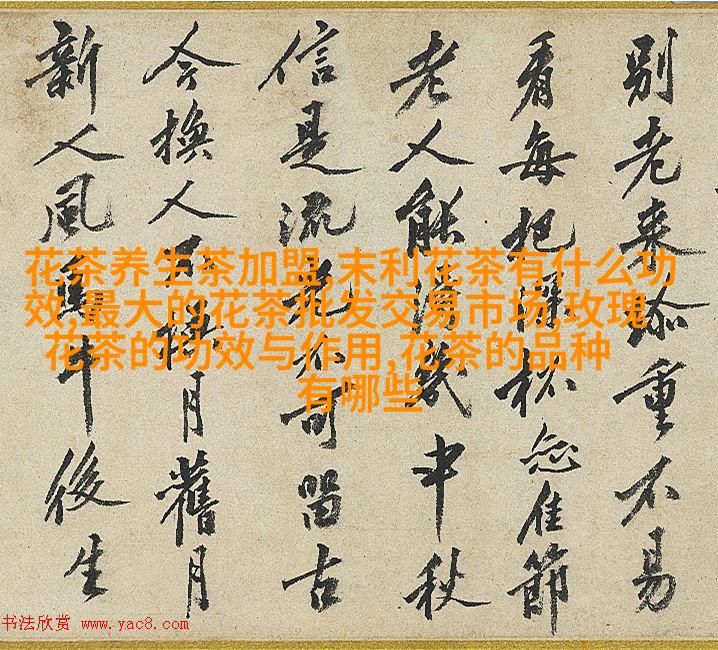 花茶养生茶加盟,末利花茶有什么功
效,最大的花茶批发交易市场,玫瑰
花茶的功效与作用,花茶的品种
有哪些
别老来弥重不易
看每把杯佳節
老人能得幾中秋
信是流光不可留古
今換人不換月舊月
新人風千後生
书法欣赏 www.yac8.com